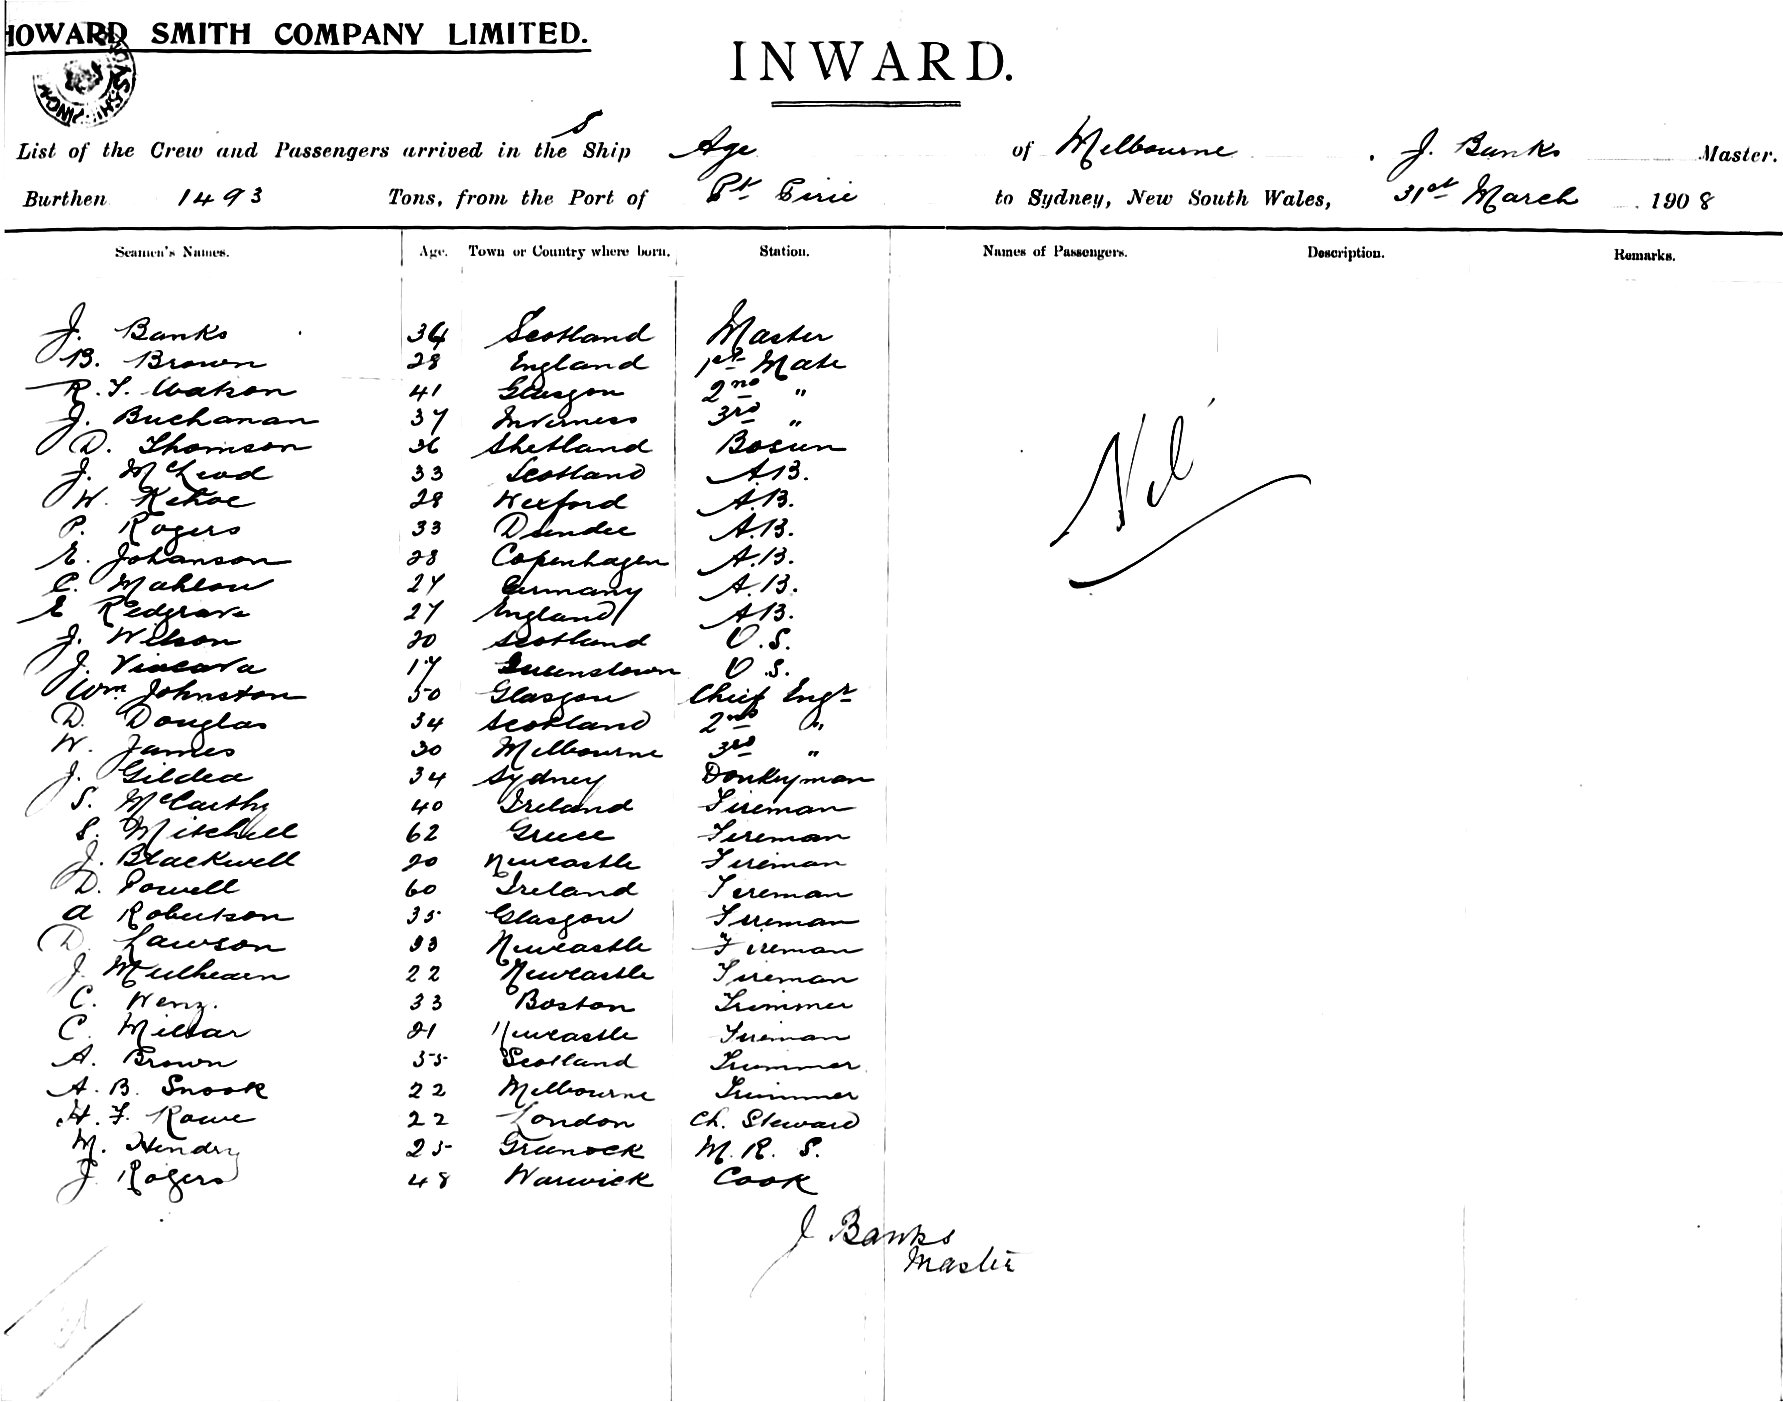 HOWARD SMITH COMPANY LIMITED.
INWARD.
List of the Crew and Passengers arrived in the S Ship Age of Melbourne . J. Banks Master.
Burthen 1493 Tons, from the Port of Pt Pirie to Sydney, New South Wales, 31st March 1908
Seamen's Names. Age. Town or Country where born. Station. Names of Passengers. Description. Remarks.
J. Banks 34 Scotland Master
B. Brown 28 England 1st Mate
R. T. Watson 41 Glasgow 2nd "
J. Buchanan 37 Inverness 3rd "
D. Thomson 36 Shetland Bosun
J. McLeod 33 Scotland A.B.
W. Kehoe 28 Wexford A.B.
P. Rogers 33 Dundee A.B.
E. Johanson 28 Copenhagen A.B.
C. Mahlow 27 Germany A.B.
E Redgrave 27 England A.B.
J. Wilson 20 Scotland O.S.
J. 17 Queenstown O.S.
Wm Johnston 50 Glasgow Chief Engr
D. Douglas 34 Scotland 2nd "
W. James 30 Melbourne 3rd "
J. Gildea 34 Sydney Donkeyman
S. McCarthy 40 Ireland Fireman
S. Mitchell 62 Greece Fireman
J. Blackwell 20 Newcastle Fireman
D. Powell 60 Ireland Fireman
A Robertson 35 Glasgow Fireman
D. Lawson 23 Newcastle Fireman
J. Mulhearn 22 Newcastle Fireman
C. Wenz. 33 Boston Trimmer
C. Millar 21 Newcastle Fireman
A. Brown 35 Scotland Trimmer
A. B. Snook 22 Melbourne Trimmer
H. F. Rowe 22 London Ch. Steward
M. Hendry 25 Greenock M. R. S.
J Rogers 48 Warwick Cook
Nil
J Banks
Master